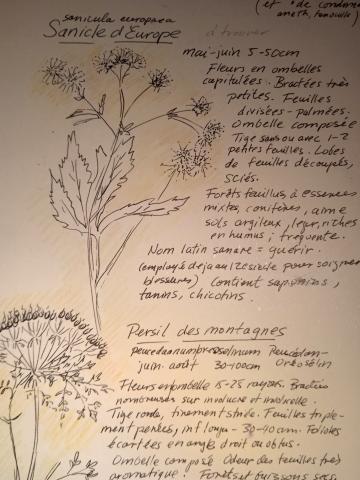 (et de condim
aneth, fenouille)
sanicula europaea
Sanicle d'Europe
à trouver
mai-juin 5-50cm
Fleurs en ombelles
capitulées. Bractées très
petites. Feuilles
divisées-palmées.
Ombelle composée
Tige sans ou avec 1-2
petites feuilles. Lobes
de feuilles découpés,
sciés.
Forêts feuillus, à essences
mixtes, conifères, aime
sols argileux, leger, riches
en humus; fréquente.
Nom latin sanare = guérir.
(employé deja au 12e siecle pour soigner
blessures) Contient saponines,
tanins, chicotins.
Persil des montagnes
peucedanum oreoselinum Peucédan-
juin. août 30-100cm Oréosélin
Fleurs en ombelle 15-25 rayons. Bractées
nombreuses sur involucre et involucelle.
Tige ronde, finement striée. Feuilles triple-
ment pennées, inf longu- 30-40cm. Folioles
écartées en angle droit ou obtus.
Ombelle composé Odeur des feuilles très
aromatique! Forêts et buissons secs.